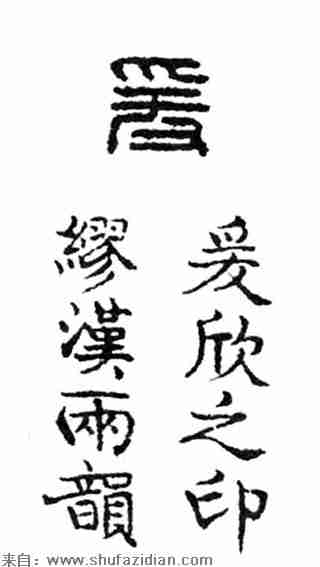 爰
爰欣之印
繆漢兩韻
来自：www.shufazidian.com